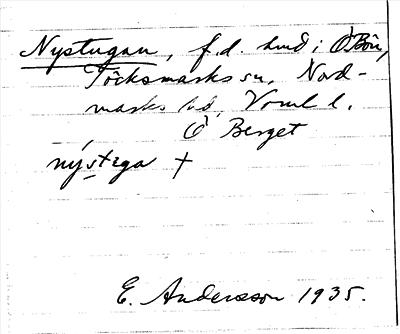 Nystugan, f.d. hmd i Ö Bön,
Töcksmarks sn, Nord-
marks hd, Vrml l.
Ö Berget
nýstega †
E. Andersson 1935.